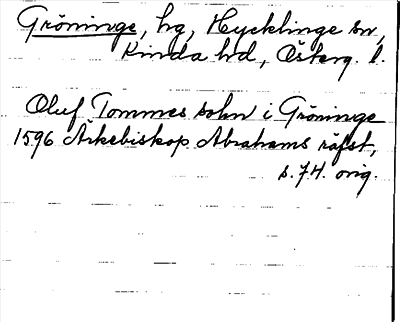 Gröninge, hg, Hycklinge sn,
Kinda hd, Österg. l.
Oluf Tommes sohn i Gröninge
1596 Ärkebiskop Abrahams räfst,
s. 74. orig.